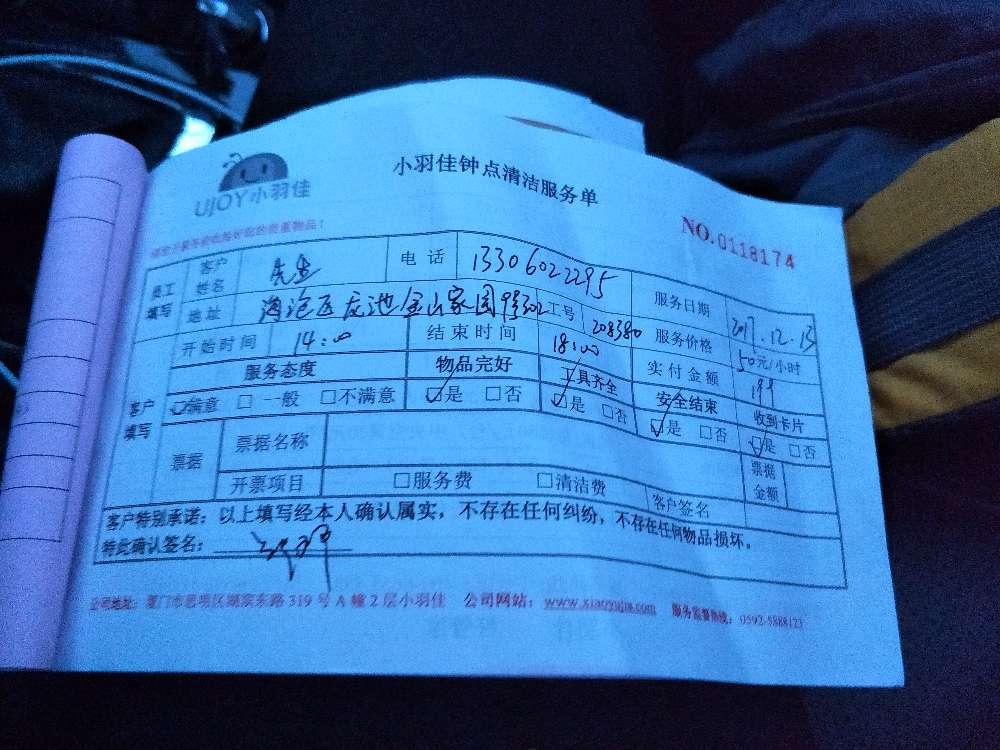 UJOY小羽佳
小羽佳钟点清洁服务单
NO.0118174
员工填写 客户姓名 先生 电话 13306022295 服务日期 2017.12.13
地址 海沧区 金山家园 302 工号 208380 服务价格 50元/小时
开始时间 14:00 结束时间 18:00 实付金额 199
客户填写 服务态度 物品完好 工具齐全 安全结束 收到卡片
☑满意 □一般 □不满意 ☑是 □否 ☑是 □否 ☑是 □否 ☑是 □否
票据 票据名称 票据金额
开票项目 □服务费 □清洁费 客户签名
客户特别承诺：以上填写经本人确认属实，不存在任何纠纷，不存在任何物品损坏。
特此确认签名：
公司地址：厦门市思明区湖滨东路319号A幢2层小羽佳 公司网站：www.xiaoyujia.com 服务监督热线：0592-5888123